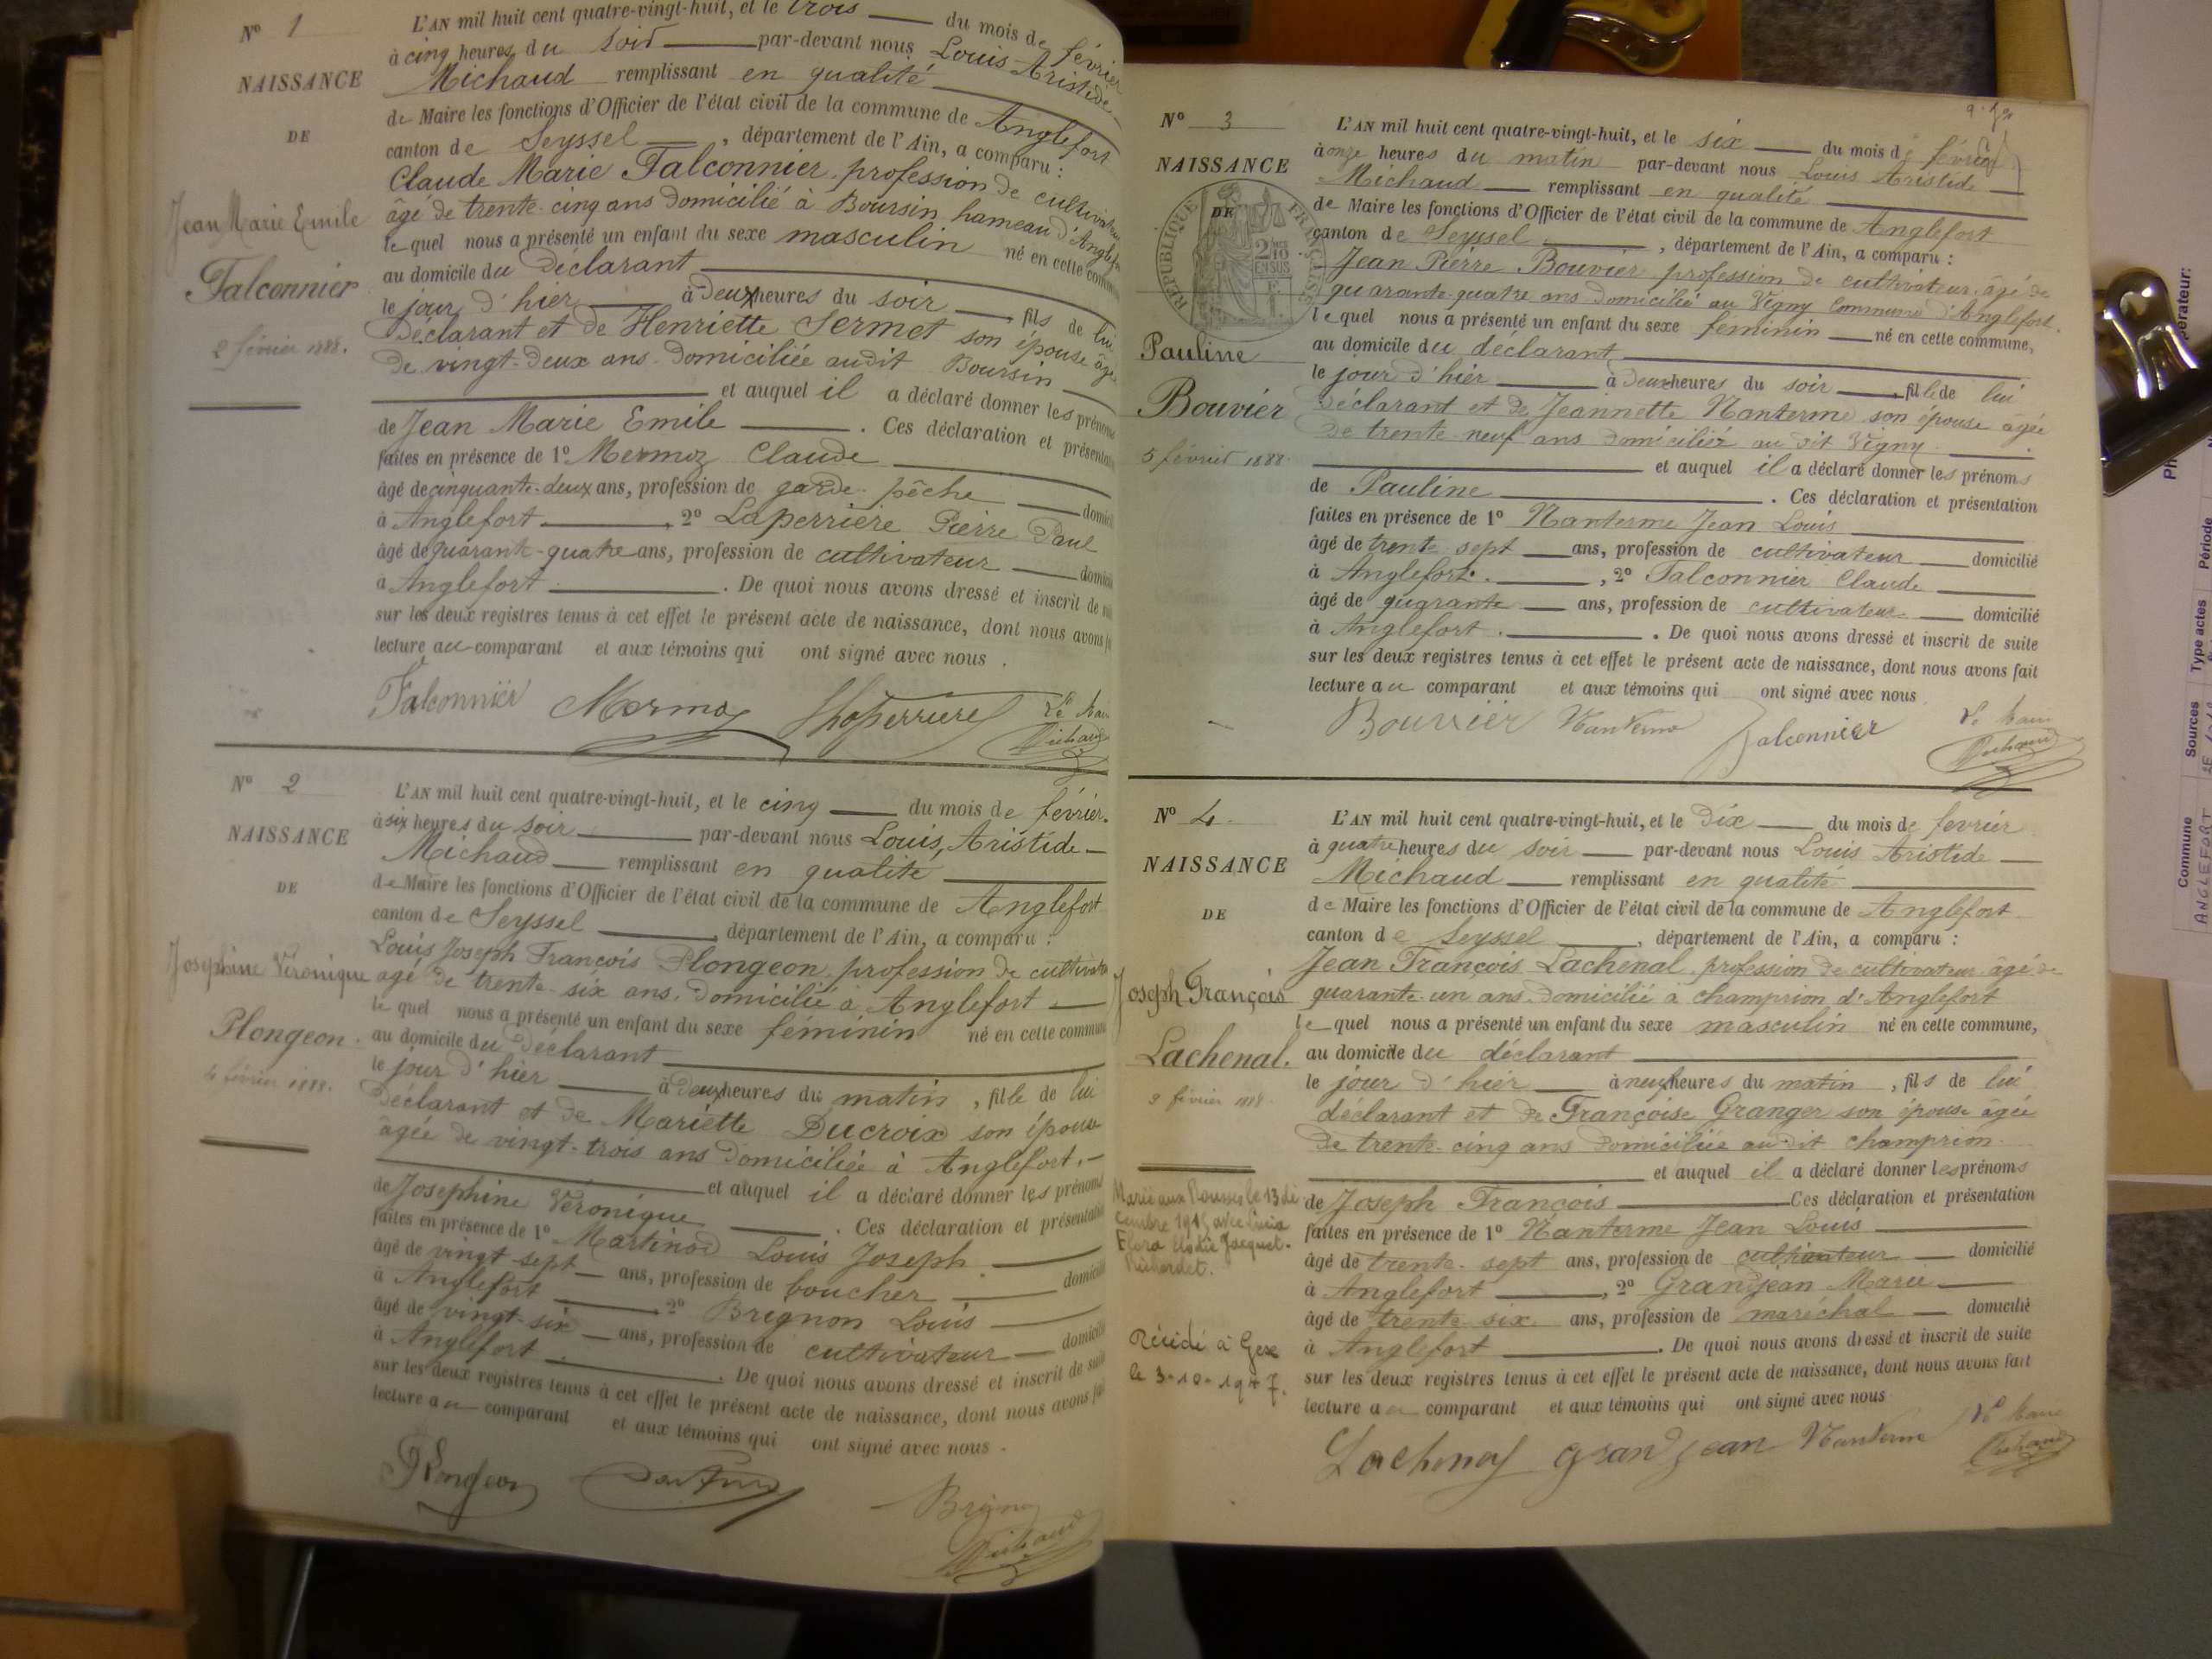 Nº 1
NAISSANCE
DE
Jean Marie Emile
Falconnier
2 février 1888.
L'AN mil huit cent quatre-vingt-huit, et le trois du mois de février
à cinq heures du soir par-devant nous Louis Aristide
Michaud remplissant en qualité
de Maire les fonctions d'Officier de l'état civil de la commune de Anglefort
canton de Seyssel, département de l'Ain, a comparu :
Claude Marie Falconnier, profession de cultivateur
âgé de trente-cinq ans domicilié à Boursin hameau d'Anglefort
lequel nous a présenté un enfant du sexe masculin né en cette commune
au domicile du déclarant
le jour d'hier à deux heures du soir fils de lui
déclarant et de Henriette Sermet son épouse âgée
de vingt-deux ans domiciliée audit Boursin
et auquel il a déclaré donner les prénoms
de Jean Marie Emile. Ces déclaration et présentation
faites en présence de 1º Mermoz Claude
âgé de cinquante-deux ans, profession de garde-pêche domicilié
à Anglefort, 2º Laperrière Pierre Paul
âgé de quarante-quatre ans, profession de cultivateur domicilié
à Anglefort. De quoi nous avons dressé et inscrit de suite
sur les deux registres tenus à cet effet le présent acte de naissance, dont nous avons fait
lecture au comparant et aux témoins qui ont signé avec nous.
Falconnier Mermoz Laperrière Le Maire
Michaud
Nº 2
NAISSANCE
DE
Josephine Véronique
Plongeon.
4 février 1888.
L'AN mil huit cent quatre-vingt-huit, et le cinq du mois de février.
à six heures du soir par-devant nous Louis, Aristide
Michaud remplissant en qualité
de Maire les fonctions d'Officier de l'état civil de la commune de Anglefort
canton de Seyssel, département de l'Ain, a comparu :
Louis Joseph François Plongeon, profession de cultivateur
âgé de trente-six ans, domicilié à Anglefort
lequel nous a présenté un enfant du sexe féminin né en cette commune
au domicile du déclarant
le jour d'hier à deux heures du matin, fille de lui
déclarant et de Mariette Ducroix son épouse
âgée de vingt-trois ans domiciliée à Anglefort.
et auquel il a déclaré donner les prénoms
de Josephine Véronique. Ces déclaration et présentation
faites en présence de 1º Martinod Louis Joseph
âgé de vingt sept ans, profession de boucher domicilié
à Anglefort, 2º Brignon Louis
âgé de vingt-six ans, profession de cultivateur domicilié
à Anglefort. De quoi nous avons dressé et inscrit de suite
sur les deux registres tenus à cet effet le présent acte de naissance, dont nous avons fait
lecture au comparant et aux témoins qui ont signé avec nous.
Plongeon
Michaud
Nº 3
NAISSANCE
DE
RÉPUBLIQUE FRANÇAISE
Pauline
Bouvier
5 février 1888.
L'AN mil huit cent quatre-vingt-huit, et le six du mois de février
à onze heures du matin par-devant nous Louis Aristide
Michaud remplissant en qualité
de Maire les fonctions d'Officier de l'état civil de la commune de Anglefort
canton de Seyssel, département de l'Ain, a comparu :
Jean Pierre Bouvier, profession de cultivateur, âgé de
quarante-quatre ans domicilié au Vigny commune d'Anglefort.
lequel nous a présenté un enfant du sexe féminin né en cette commune,
au domicile du déclarant
le jour d'hier à deux heures du soir, fille de lui
déclarant et de Jeannette Nanterme son épouse âgée
de trente-neuf ans domiciliée au dit Vigny.
et auquel il a déclaré donner les prénoms
de Pauline. Ces déclaration et présentation
faites en présence de 1º Nanterme Jean Louis
âgé de trente-sept ans, profession de cultivateur domicilié
à Anglefort., 2º Falconnier Claude
âgé de quarante ans, profession de cultivateur domicilié
à Anglefort. De quoi nous avons dressé et inscrit de suite
sur les deux registres tenus à cet effet le présent acte de naissance, dont nous avons fait
lecture au comparant et aux témoins qui ont signé avec nous
Bouvier Nanterme Falconnier Le Maire
Michaud
Nº 4.
NAISSANCE
DE
Joseph François
Lachenal.
9 février 1888.
Marié aux Rousses le 13 dé-
cembre 1915 avec Lucia
Flora Elodie Jacquet-
Décédé à Gex
le 3-10-1947.
L'AN mil huit cent quatre-vingt-huit, et le dix du mois de février
à quatre heures du soir par-devant nous Louis Aristide
Michaud remplissant en qualité
de Maire les fonctions d'Officier de l'état civil de la commune de Anglefort
canton de Seyssel, département de l'Ain, a comparu :
Jean François Lachenal, profession de cultivateur, âgé de
quarante-un ans domicilié à champrion d'Anglefort
lequel nous a présenté un enfant du sexe masculin né en cette commune,
au domicile du déclarant
le jour d'hier à neuf heures du matin, fils de lui
déclarant et de Françoise Granger son épouse âgée
de trente-cinq ans domiciliée audit champrion.
et auquel il a déclaré donner les prénoms
de Joseph François Ces déclaration et présentation
faites en présence de 1º Nanterme Jean Louis
âgé de trente-sept ans, profession de cultivateur domicilié
à Anglefort, 2º Grandjean Marie
âgé de trente six ans, profession de maréchal domicilié
à Anglefort. De quoi nous avons dressé et inscrit de suite
sur les deux registres tenus à cet effet le présent acte de naissance, dont nous avons fait
lecture au comparant et aux témoins qui ont signé avec nous
Lachenal Grandjean Nanterme Le Maire
Michaud
Commune Sources Type actes Période
ANGLEFORT